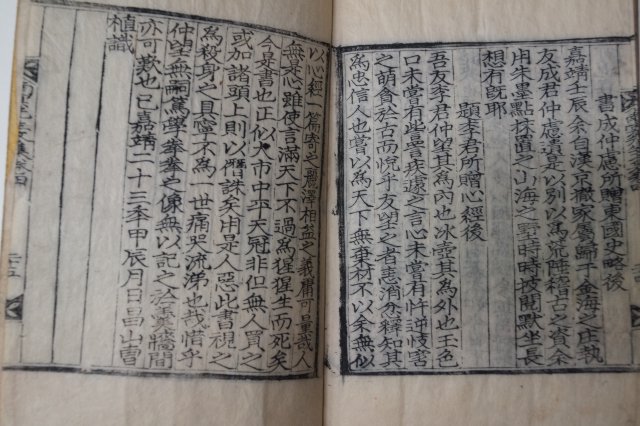 書成仲慮所贈東國史略後
嘉靖壬辰余自漢京撤家屬歸于金海之庄執
友成君仲慮遺是以別以爲荒陲稽古之資余
用朱墨點抹置之山海之野時時披閱默坐長
想有旣耶
題李君所贈心經後
吾友李君仲望其爲內也氷壺其爲外也玉色
口未嘗有些喜疾遽之言心未嘗有忤逆忮害
之萌貪於古而悅乎友望之者悉消亦釋知其
爲忠信人也嘗以爲天下無棄材不以余無似
以心經一篇寄之麗澤相益之義庸可量哉人
無心雖使言滿天下不過爲猩猩生而死矣
今是書也正似人市中平天冠非但無人買之
或加諸頭上則以僭誅矣用是人惡此書視之
爲殺身之具寧不爲一世痛哭流涕也哉惜乎
仲望無嗣篤學拳拳之像無以記之於雲牖間
亦可歎也已嘉靖二十三季甲辰月日昌山曺
植識